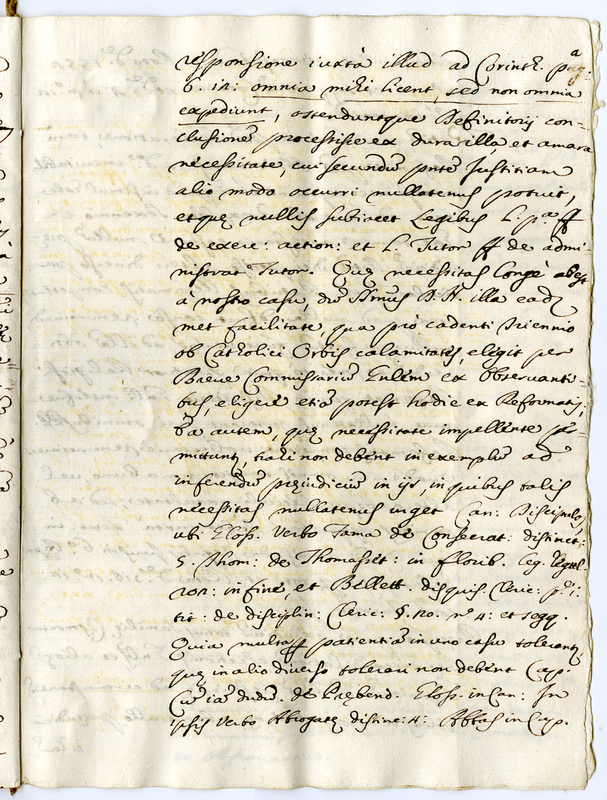 responsione iuxtà illud ad Corinth. pᵃ
6. 12: omnia mihi licent, sed non omnia
expediunt, ostenduntque Definitorij con=
clusiones processisse ex dura illa et amara
necessitate, cui secundũ pntẽ Justitiam
alio modo occurri nullatenus potuit,
etque nullis subiacet Legibus L. pᵃ ff
de exerc: action: et L. Tutor ff de admi=
nistrat Tutor. Quę necessitas longè abest
à nostro casu, dũ SSmus D. N. illa eadẽ
met facilitate, qua pro cadenti triennio
ob Catholici Orbis calamitates elegit per
Breve Commissariũ Gnlem ex Observanti=
bus, eligere etiã potest hodie ex Reformatis,
autem, quę necessitate impellente per
mittunt, trahi non debent in exemplũ ad
inferendũ pręiudiciũ in ijs, in quibus talis
necessitas nullatenus urget Can: Discipulos
ubi Gloss. Verbo fama de Consecrat: distinct:
5. Thom: de Thomasset: in florib. leg. regul
202: in fine, et Bellett. disquis. Cleric: pᵉ 1:
tit: de disciplin: Cleric: §. 20. nº 4: et seqq.
Quia multa patientiã in uno casu tolerant,
quę in alio diverso tolerari non debent Cap.
Cũ iã dudũ. de Prębend. Gloss. in Can: In
ipsis verbo Abrogatę distinc: 4: Abbas in Cap.